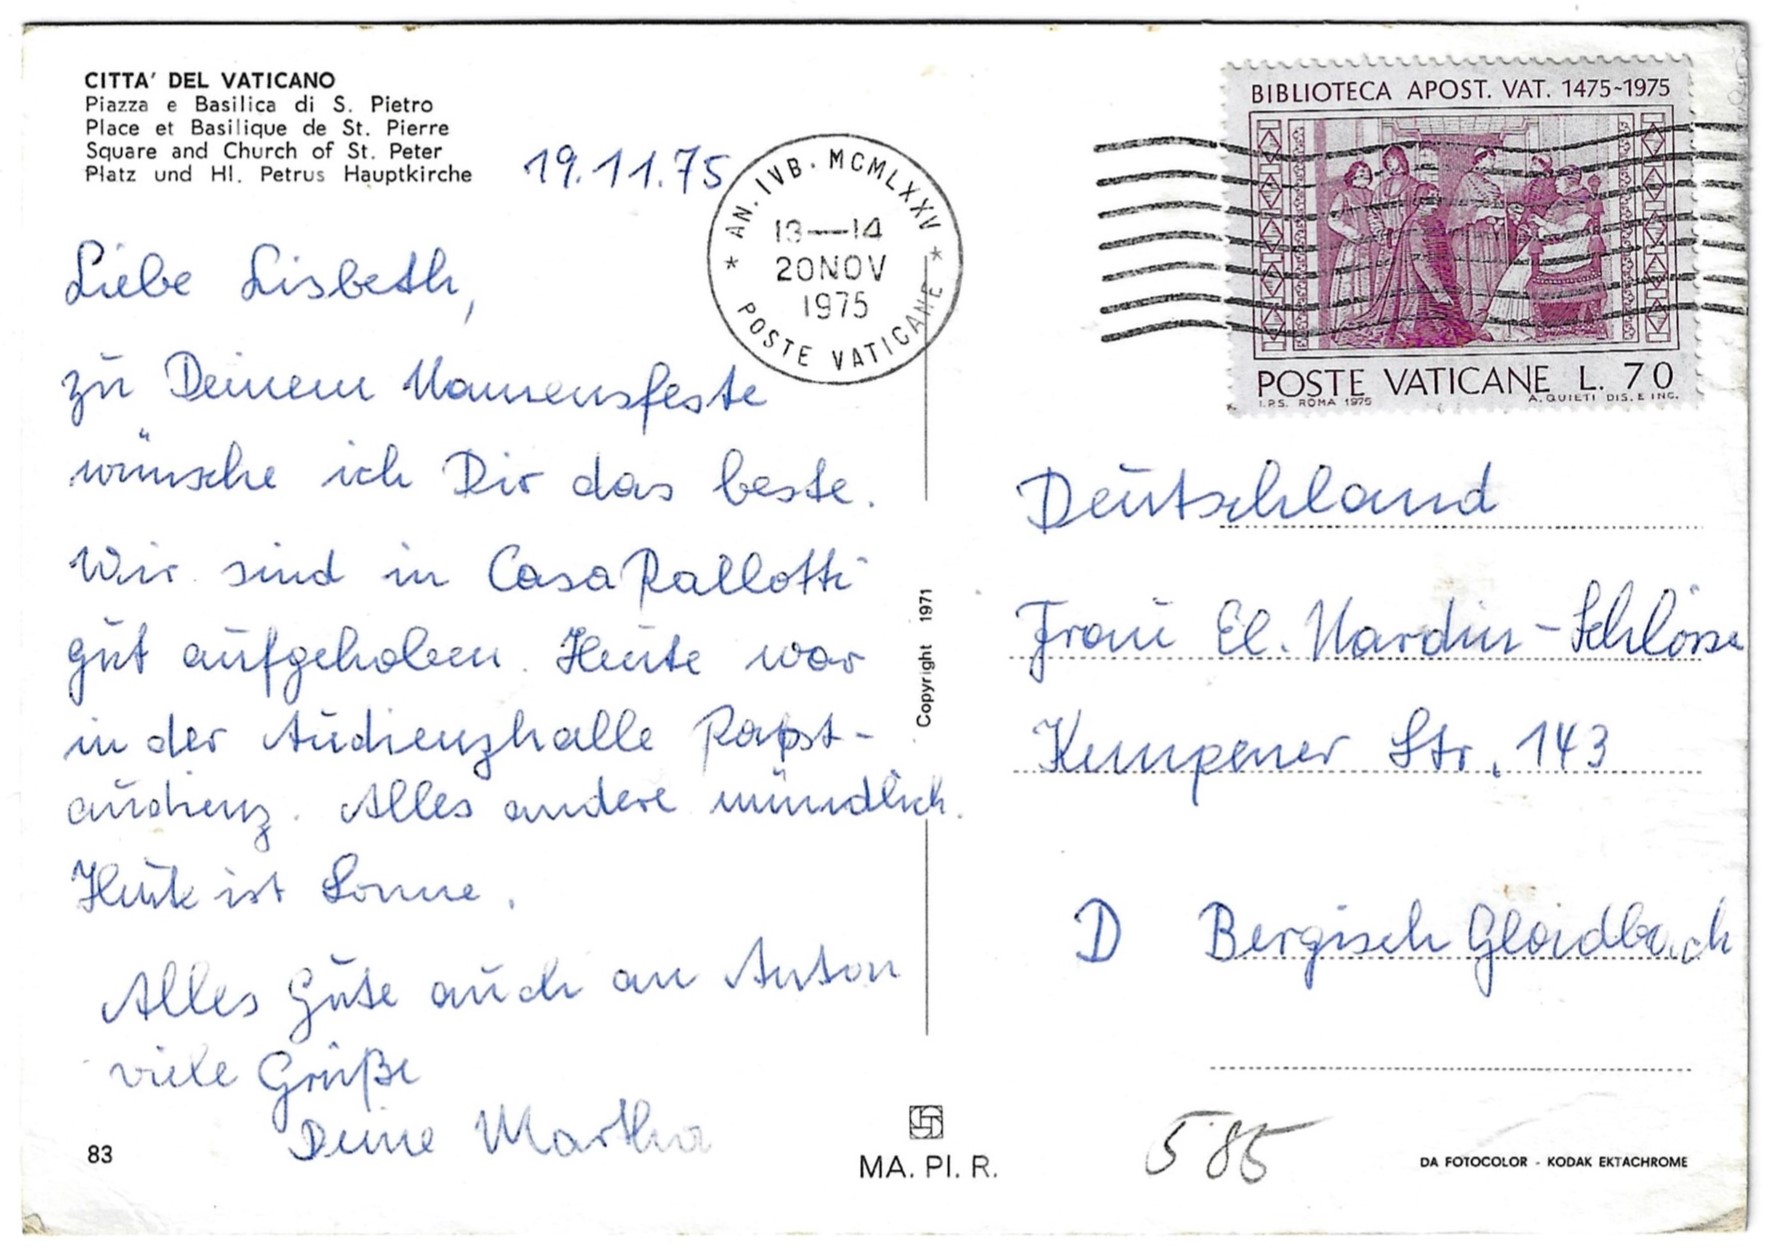 CITTA' DEL VATICANO
Piazza e Basilica di S. Pietro
Place et Basilique de St. Pierre
Square and Church of St. Peter
Platz und Hl. Petrus Hauptkirche
19.11.75
Liebe Lisbeth,
zu Deinem Namensfeste
wünsche ich Dir das beste.
Wir sind in Casa Pallotti
gut aufgehoben. Heute war
in der Audienzhalle Papst-
audienz. Alles andere mündlich.
Heute ist Sonne.
Alles Gute auch an Anton
viele Grüße
Deine Martha
83
AN. IVB. MCMLXXV
13—14
20 NOV
1975
* POSTE VATICANE *
BIBLIOTECA APOST. VAT. 1475-1975
POSTE VATICANE L. 70
I.P.S. ROMA 1975 A. QUIETI DIS. E INC.
Copyright 1971
Deutschland
Frau El. Nardin-Schlösse
Kempener Str. 143
D Bergisch Gladbach
585
MA. PI. R.
DA FOTOCOLOR - KODAK EKTACHROME